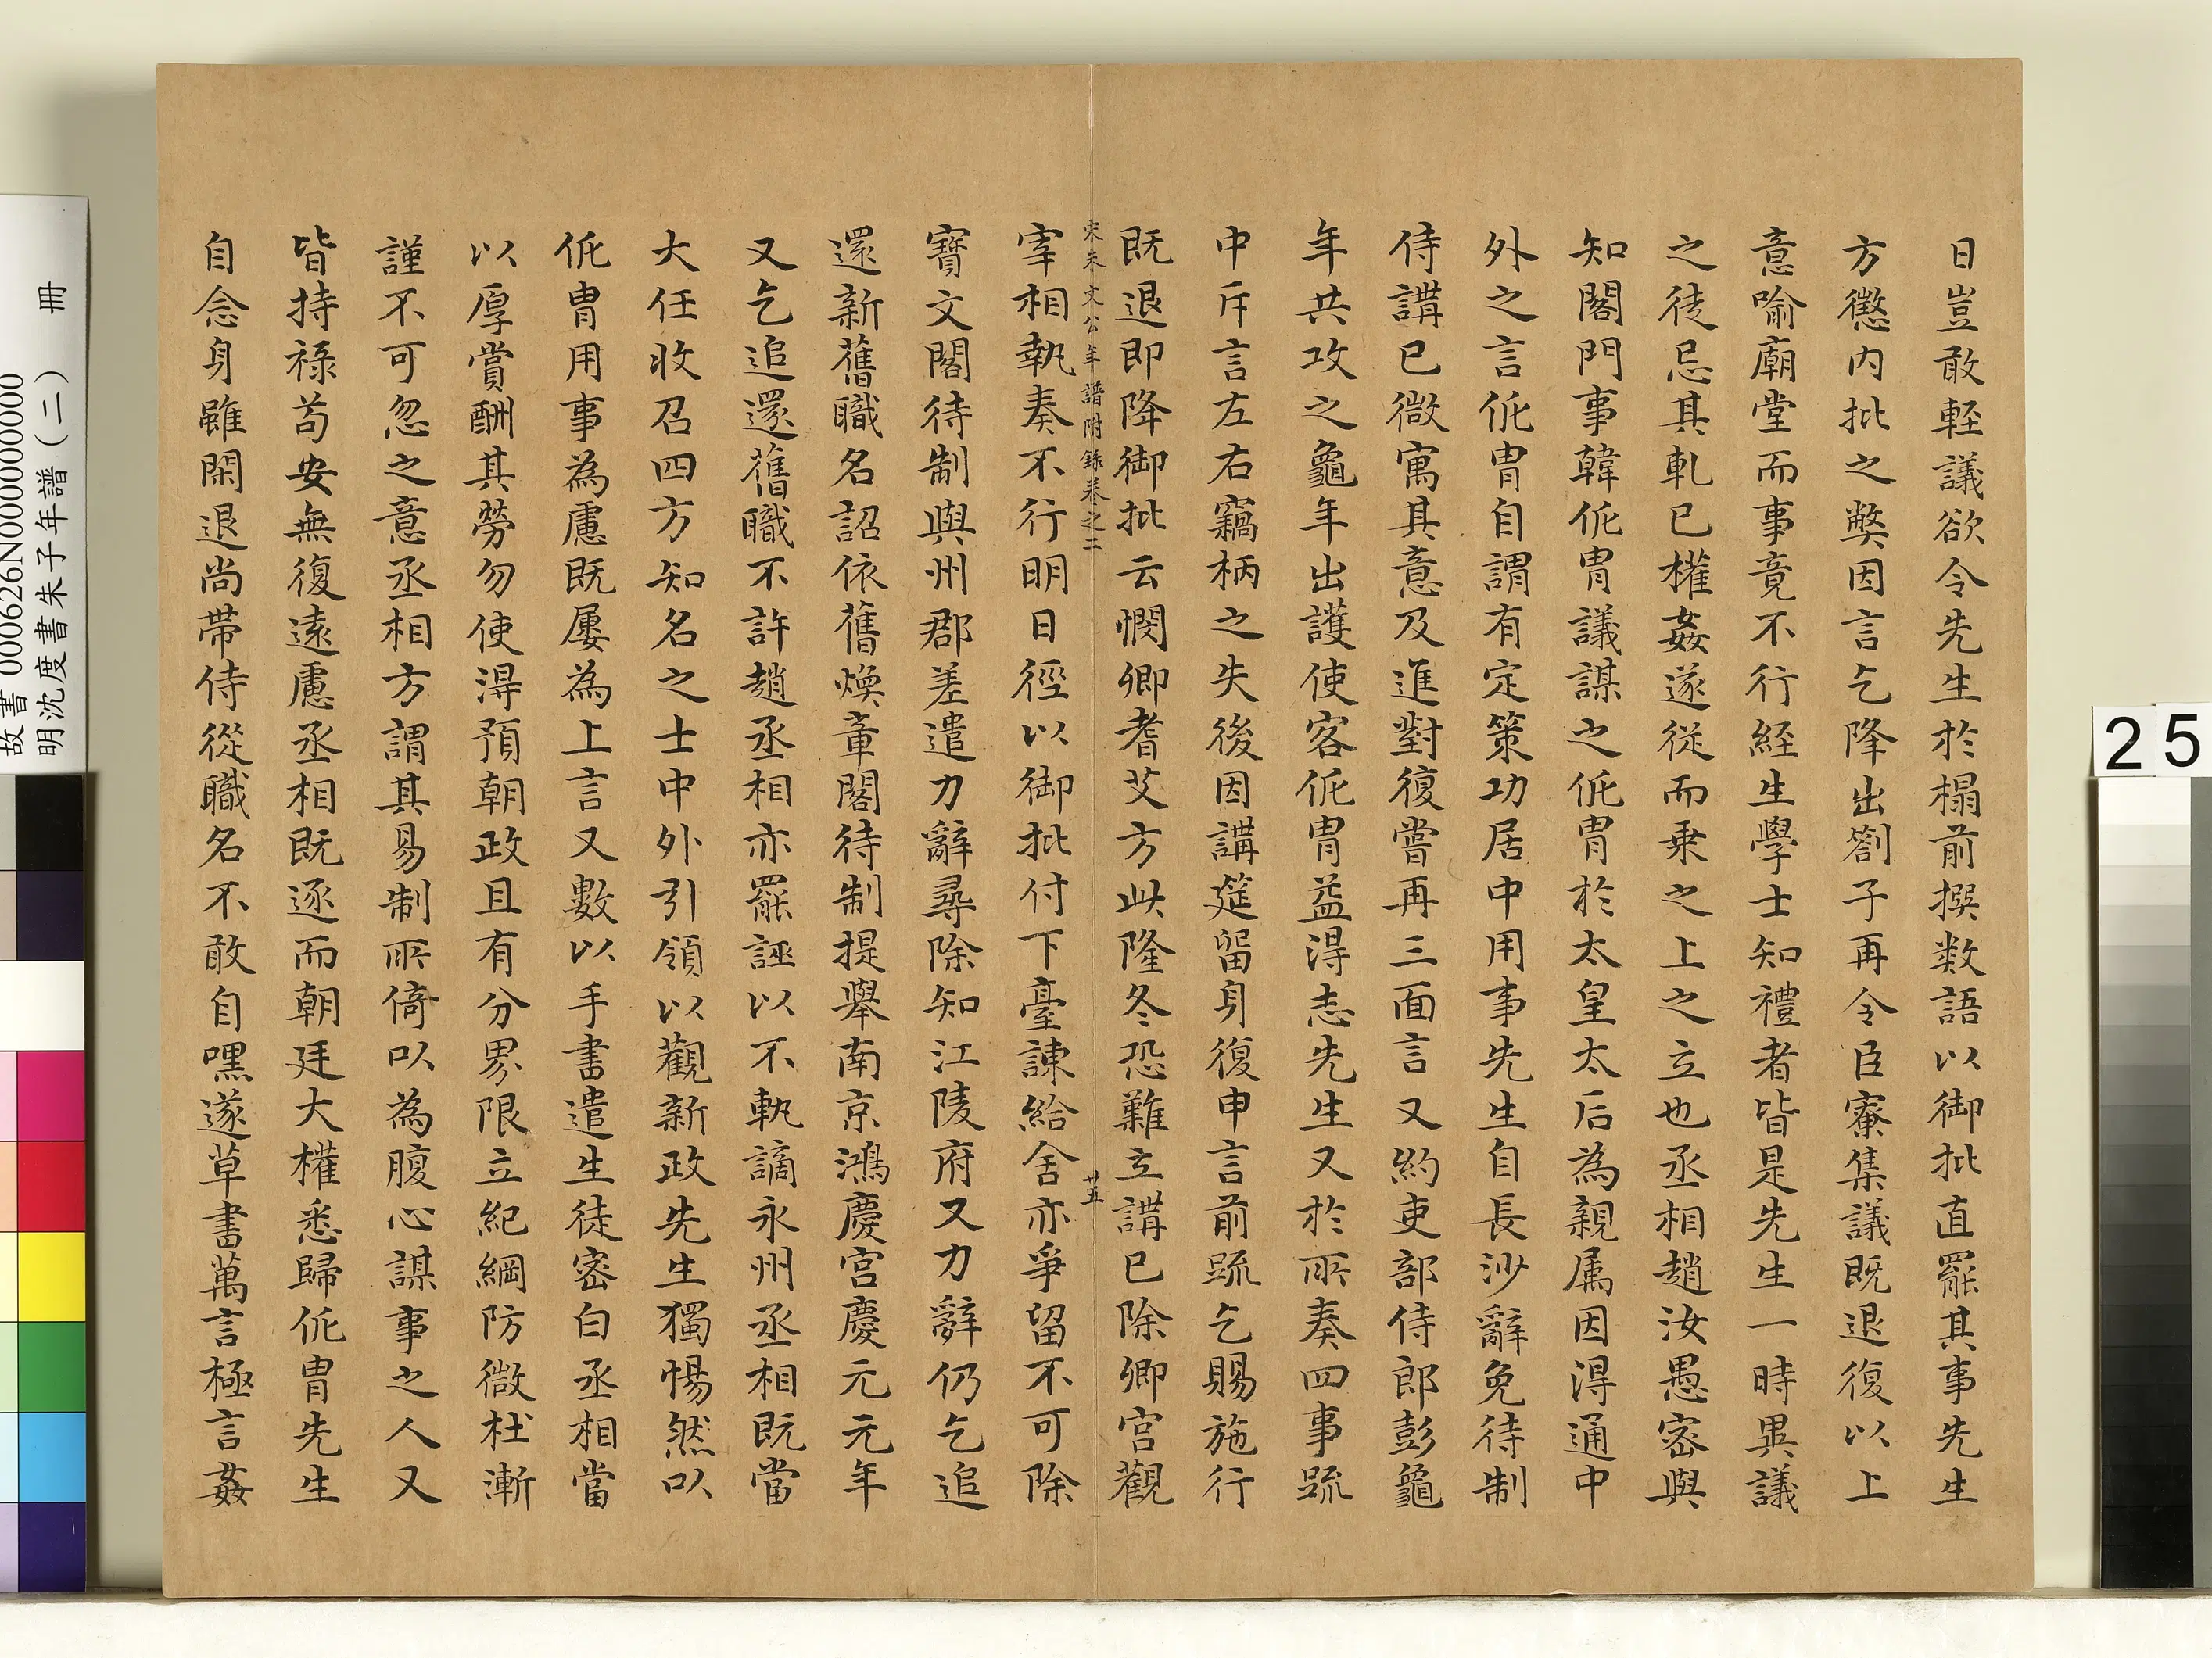 日豈敢輕議欲令先生於榻前撰数語以御批直罷其事先生
方懲内批之弊因言乞降出劄子再令臣寮集議既退復以上
意喻廟堂而事竟不行経生學士知禮者皆是先生一時異議
之徒忌其軋已權姦遂從而乗之上之立也丞相趙汝愚密與
知閤門事韓侂胄議謀之侂胄於太皇太后為親属因得通中
外之言侂胄自謂有定策功居中用事先生自長沙辭免待制
侍講已微寓其意及進對復嘗再三面言又約吏部侍郎彭龜
年共攻之龜年出護使客侂胄益得志先生又於所奏四事疏
中斥言左右竊柄之失後因講筵留身復申言前疏乞賜施行
既退即降御批云憫卿耆艾方此隆冬恐難立講已除卿宫觀
宋朱文公年譜附録巻之二 廿五
宰相執奏不行明日徑以御批付下臺諫給舍亦爭留不可除
寶文閣待制與州郡差遣力辭尋除知江陵府又力辭仍乞追
還新舊職名詔依舊煥章閣待制提舉南京鴻慶宫慶元元年
又乞追還舊職不許趙丞相亦罷誣以不軌謫永州丞相既當
大任收召四方知名之士中外引領以觀新政先生獨惕然以
侂胄用事為慮既屢為上言又數以手書遣生徒密白丞相當
以厚賞酬其勞勿使得預朝政且有分界限立紀綱防微杜漸
謹不可忽之意丞相方謂其易制所倚以為腹心謀事之人又
皆持祿苟安無復遠慮丞相既逐而朝廷大權悉歸侂胄先生
自念身雖閑退尚帶侍從職名不敢自嘿遂草書萬言極言姦
故書 000626N000000000
明沈度書朱子年譜(二) 冊
25